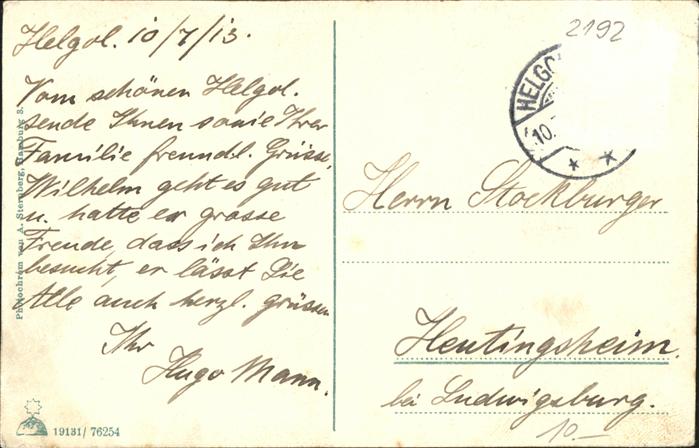 Helgol. 10/7/13.
Vom schönen Helgol.
sende Ihnen sowie Ihrer
Familie freundl. Grüsse,
Wilhelm geht es gut
u. hatte er grosse
Freude, dass ich Ihn
besucht, er lässt Sie
Alle auch herzl. grüssen
Ihr
Hugo Mann.
Photochrom van A. Sternberg, Hamburg 3.
19131/76254
2192
HELGO
10.
Herrn Stockburger
Heutingsheim.
bei Ludwigsburg.
10—